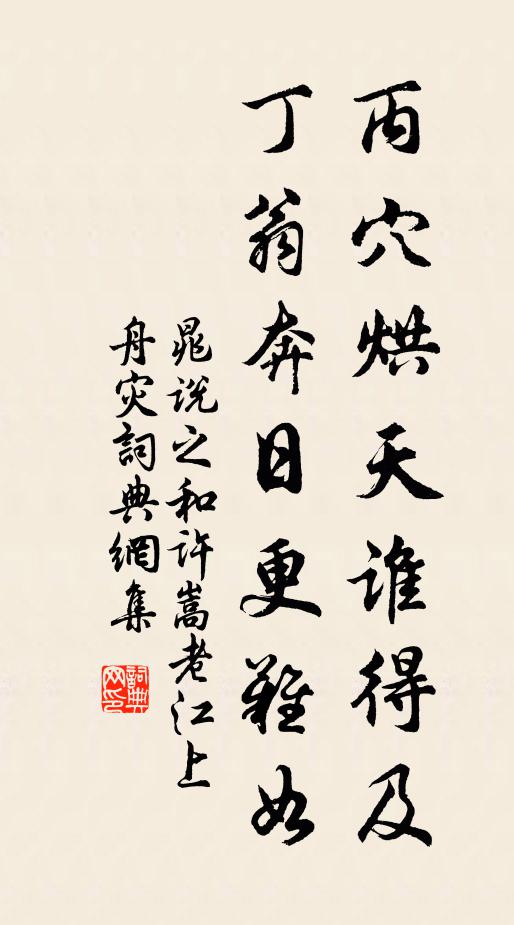 丙穴烘天谁得及
丁翁奔日更難如
晁説之和許嵩老江上
舟灾詞典網集
詞典网印